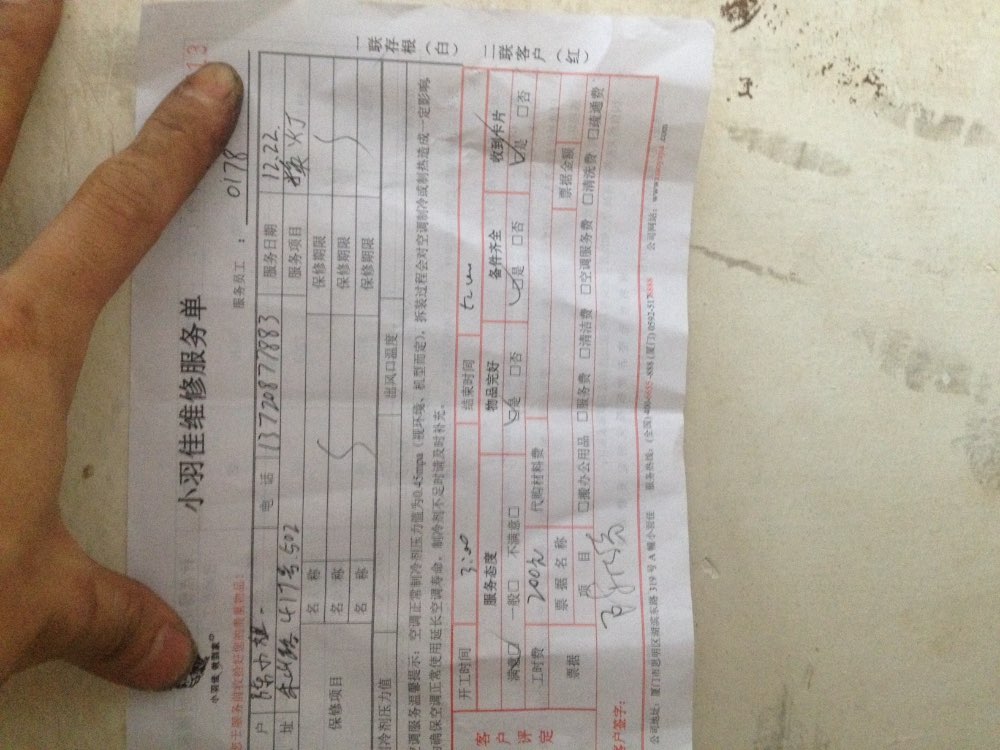 一联存根(白) 二联客户(红)
小羽佳维修服务单
小羽佳 俏到家
服务员工: 0178
贵重物品!
户 电话 13720877883 服务日期 12.22
址 417号502 服务项目 换灯
保修项目 名称 保修期限
名称 保修期限
名称 保修期限
冷剂压力值 出风口温度
调服务温馨提示:空调正常制冷剂压力值为0.45mpa(视环境、机型而定),拆装过程会对空调制冷或制热造成一定影响
确保空调正常使用延长空调寿命,制冷剂不足时请及时补充。
开工时间 3:00 结束时间
客户评定 服务态度 物品完好 备件齐全 收到卡片
满意☑ 一般□ 不满意□ ☑是 □否 ☑是 □否 ☑是 □否
工时费 200元 代购材料费
票据 票据名称 票据金额
项目 □搬办公用品 □服务费 □清洁费 □空调服务费 □清洗费 □疏通费
客户签字:
公司地址:厦门市思明区湖滨东路319号A幢小羽佳 服务热线:(全国) (厦门) 公司网站:www.